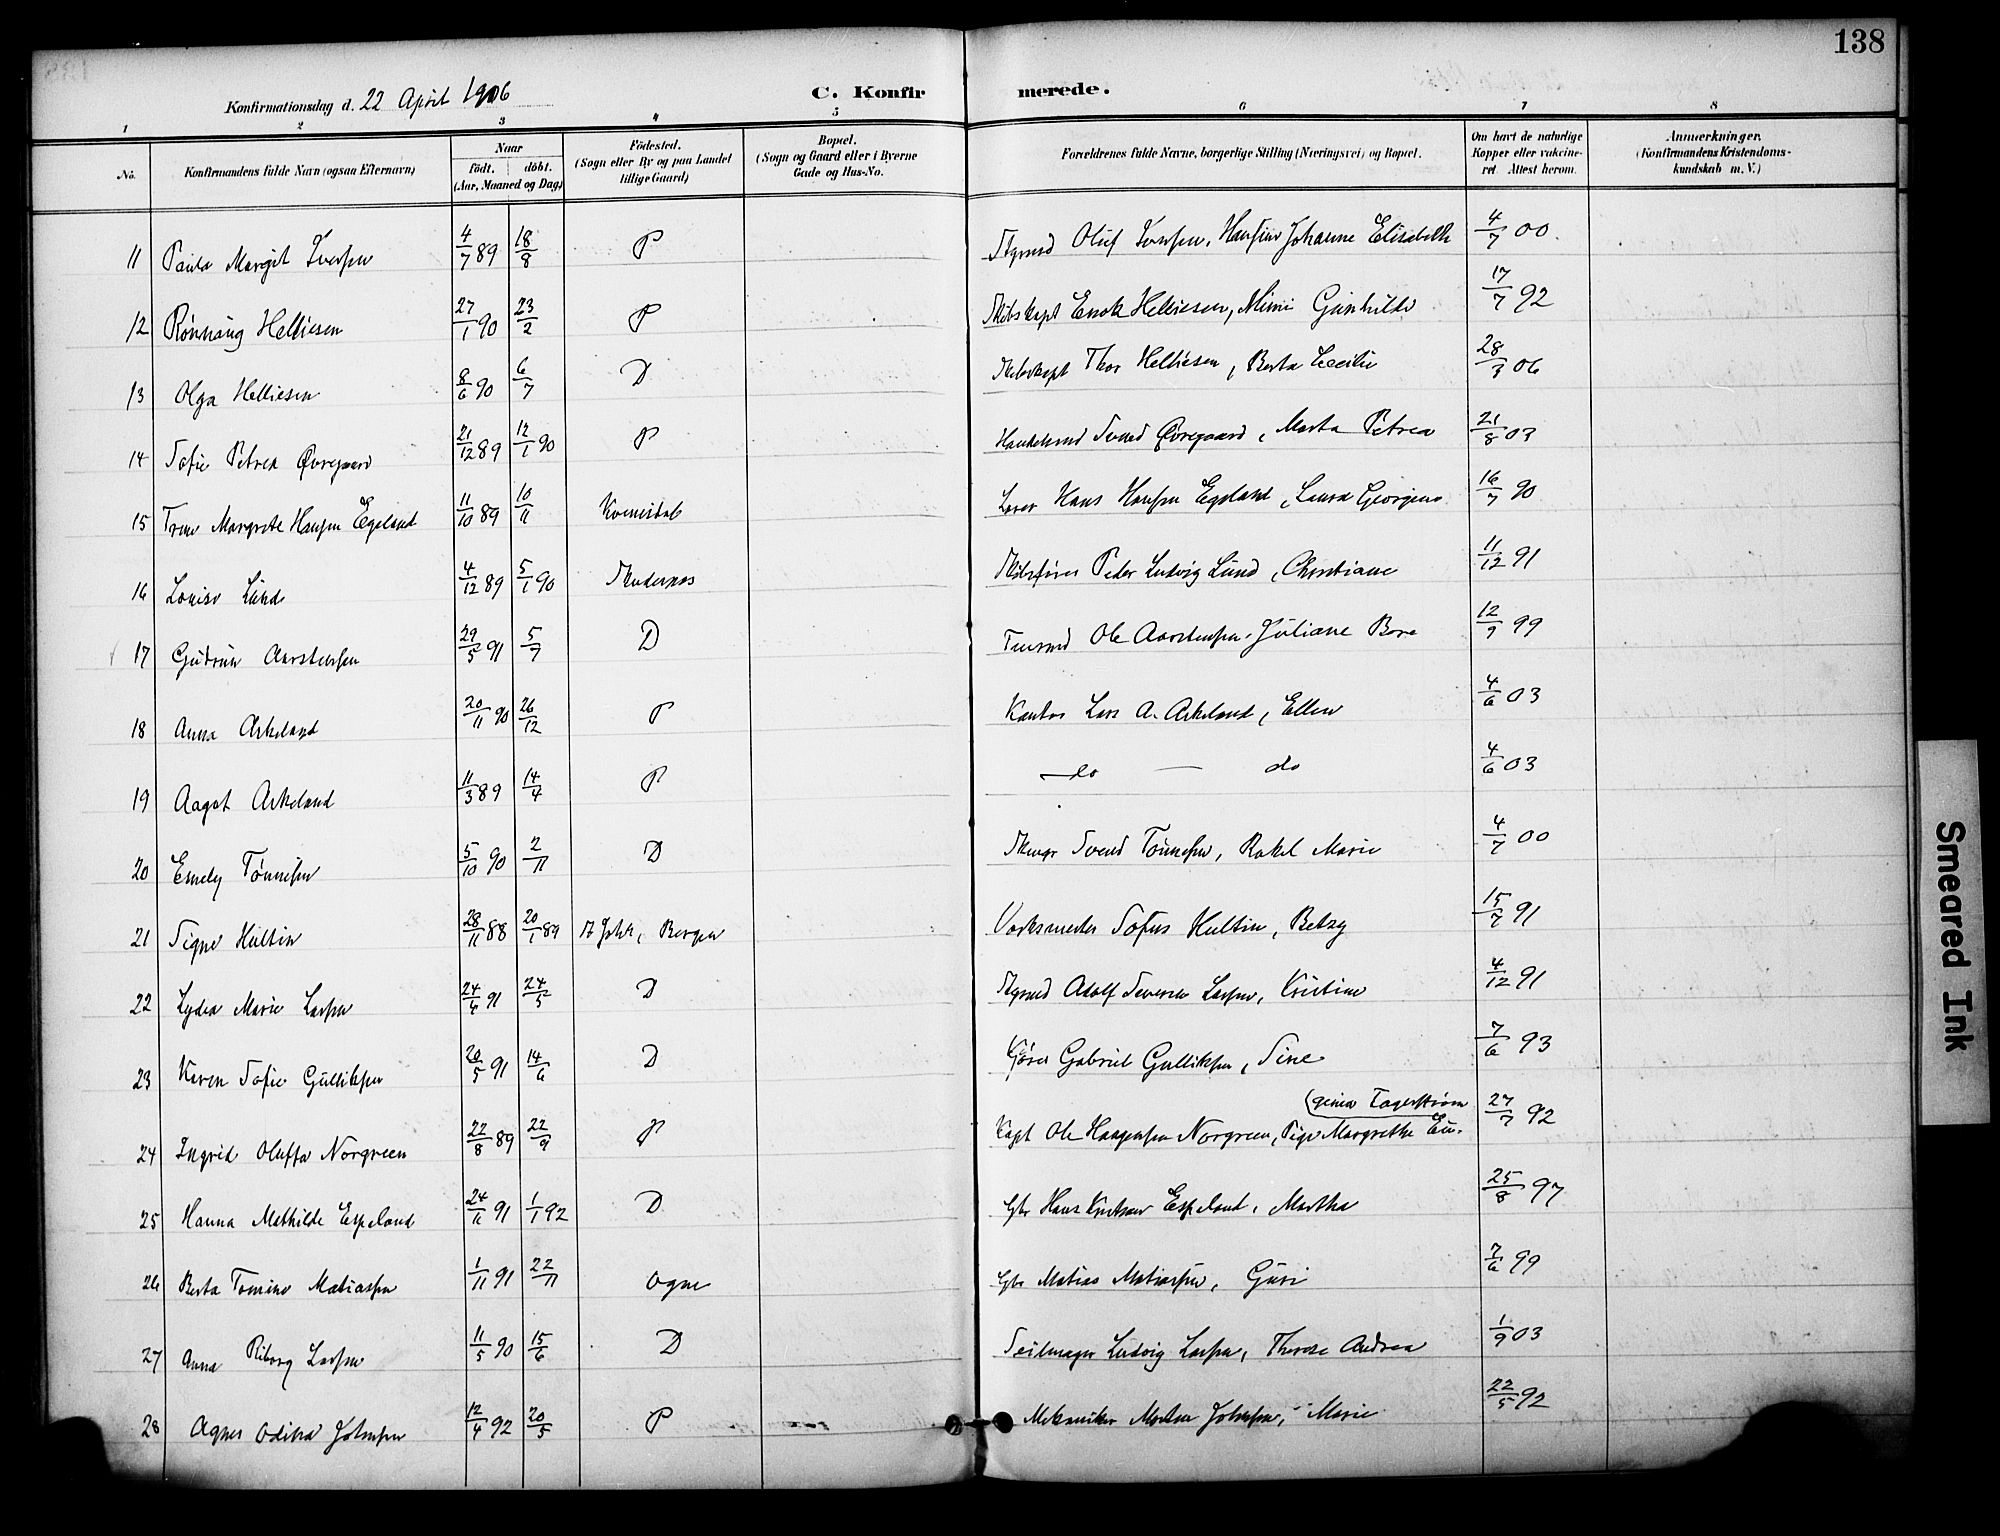 138
Konfirmationsdag d. 22 April 1906
C. Konfirmerede.
1 2 3 4 5 6 7 8
No. Konfirmandens fulde Navn (ogsaa Efternavn) Naar födt. döbt. (Aar, Maaned og Dag) Födested. (Sogn eller By og paa Landet tillige Gaard) Bopæl. (Sogn og Gaard eller i Byerne Gade og Hus-No. Forældrenes fulde Navne, borgerlige Stilling (Næringsvei) og Bopæl. Om havt de naturlige Kopper eller vakcineret. Attest herom. Anmærkninger. (Konfirmandens Kristendomskundskab m. V.)
11 Paula Margit Iversen 4/7 89 18/8 P Oluf Iversen, Johanne Elisabeth 4/7 00
12 Rönnaug Helliesen 27/1 90 23/2 P Skibskapt Enok Helliesen, Mimi Gunhilde 17/7 92
13 Olga Helliesen 8/6 90 6/7 D Skibskapt Thor Helliesen, Berta Cecilie 28/3 06
14 Sofie Petrea Øvregaard 21/12 89 12/1 90 P Svend Øvregaard, Marta Petrea 21/8 03
15 Margrete Hansen Egeland 11/10 89 10/11 Hans Hansen Egeland, Laura 16/7 90
16 Louise Lund 4/12 89 5/1 90 Skudesnes Skibsfører Peder Ludvig Lund, Christiane 11/12 91
17 Gudrun Aarstensen 29/5 91 5/7 D Ole Aarstensen, Juliane Bore 12/9 99
18 Anna Askeland 20/11 90 26/12 P Lars A. Askeland, Ellen 4/6 03
19 Aagot Askeland 11/3 89 14/4 P do — do 4/6 03
20 Emely Tönnesen 5/10 90 2/11 D Svend Tönnesen, Rakel Marie 4/7 00
21 Signe Hultin 28/11 88 20/1 89 St Joh., Bergen Verksmester Sofus Hultin, Betzy 15/7 91
22 Lydia Marie Larsen 24/4 91 24/5 D Styrmd Adolf Severin Larsen, Kristine 4/12 91
23 Karen Sofie Gulliksen 20/5 91 14/6 D Gabriel Gulliksen, Sine 7/6 93
24 Ingrid Oluffa Norgreen 22/8 89 22/9 P Kapt Ole Haagensen Norgreen, Margrethe Eugenia Lagerstrøm 27/7 92
25 Hanna Mathilde Espeland 24/11 91 1/1 92 D Gbr Hans Knutsen Espeland, Martha 25/8 97
26 Berta Tomine Matiassen 1/11 91 22/11 Ogne Gbr Matias Matiassen, Guri 7/6 99
27 Anna Riborg Larsen 11/5 90 15/6 D Seilmager Ludvig Larsen, Therese Andrea 1/9 03
28 Agnes Odilia Johnsen 12/4 92 20/5 P Mekaniker Morten Johnsen, Marie 22/5 92
Smeared Ink